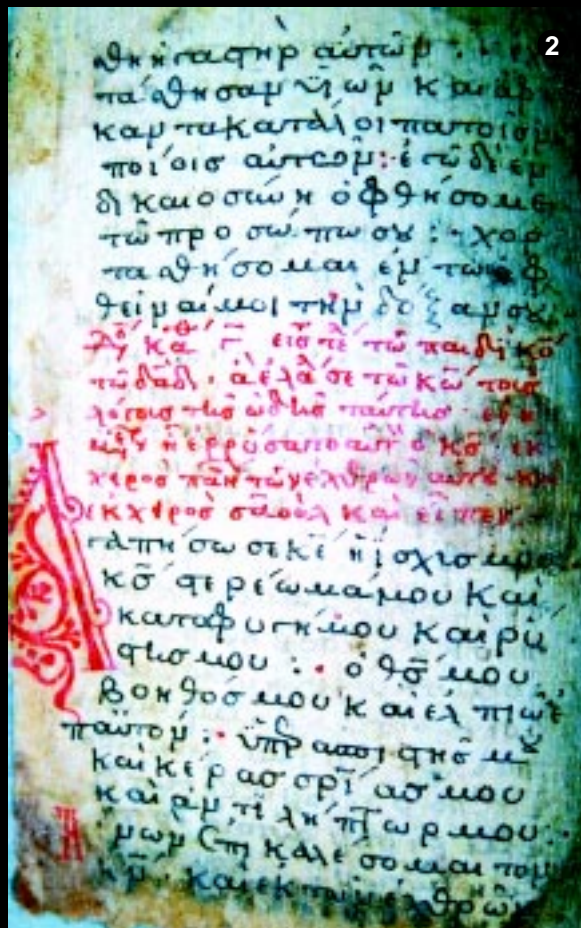 θη ἡ γαστὴρ αὐτῶν :
τάσθησαν ϋἱῶν καὶ ἀφ
καν τὰ κατάλοιπα τοῖς νη
ποίοις αὐτῶν : ἐγὼ δὲ ἐν
δικαιοσύνη ὀφθήσομαι
τῶ προσώπω σου : χορ
τασθήσομαι ἐν τῶ ὀφ
θεῖναί μοι τὴν δόξαν σου
εἰς τὸ τέλος τῶ παιδὶ κῡ
τῶ δᾱδ. ἃ ἐλάλησε τῶ κω̄ τοὺς
λόγους τῆς ὠδῆς ταύτης ἐν
ἡ ἐρρύσατο αὐτὸν ὁ κς̄ ἐκ
χειρὸς πάντων τῶν ἐχθρῶν αὐτοῦ καὶ
ἐκ χειρὸς σαοὺλ καὶ εἶπεν
Ἀγαπήσω σε κε̄ ἡ ἰσχύς μου
κς̄ στερέωμά μου καὶ
καταφυγή μου καὶ ῥύ
στης μου : ὁ θς̄ μου
βοηθός μου καὶ ἐλπιῶ ἐ
π αὐτόν : ὑπερασπιστής μου
καὶ κέρας σρ̄ίας μου
καὶ ἀντιλήπτωρ μου :
αἰνῶν ἐπικαλέσομαι τὸν
κν̄ καὶ ἐκ τῶν ἐχθρῶν
2